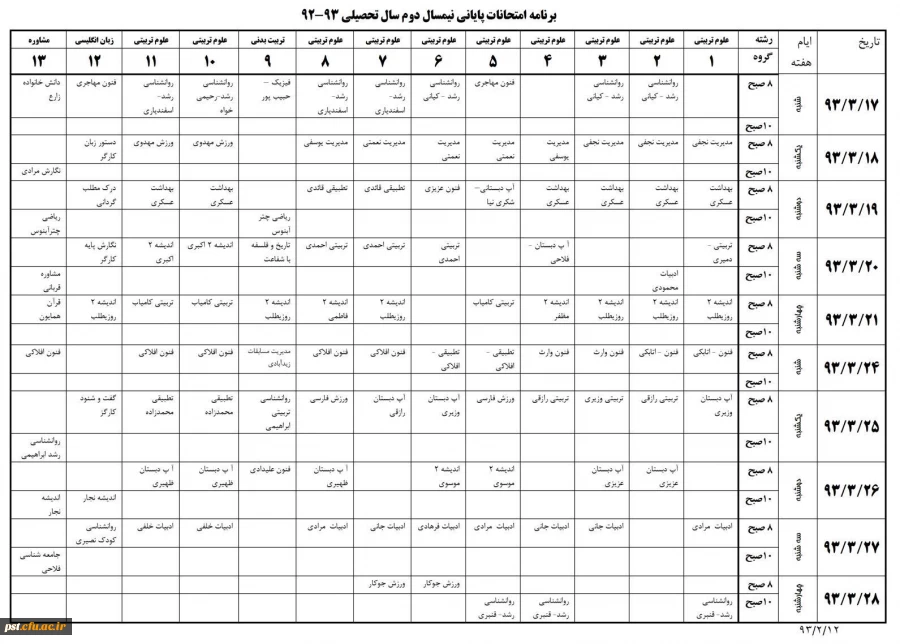 برنامه امتحانات پایانی نیمسال دوم سال تحصیلی ۹۳-۹۲
تاریخ ایام هفته رشته علوم تربیتی علوم تربیتی علوم تربیتی علوم تربیتی علوم تربیتی علوم تربیتی علوم تربیتی علوم تربیتی تربیت بدنی علوم تربیتی علوم تربیتی زبان انگلیسی مشاوره
گروه ۱ ۲ ۳ ۴ ۵ ۶ ۷ ۸ ۹ ۱۰ ۱۱ ۱۲ ۱۳
۹۳/۳/۱۷ شنبه ۸ صبح روانشناسی رشد - کیانی روانشناسی رشد - کیانی فنون مهاجری روانشناسی رشد - کیانی روانشناسی رشد- اسفندیاری روانشناسی رشد- اسفندیاری فیزیک – حبیب پور روانشناسی رشد-رحیمی خواه روانشناسی رشد- اسفندیاری فنون مهاجری دانش خانواده زارع
۱۰صبح
۹۳/۳/۱۸ یکشنبه ۸ صبح مدیریت نجفی مدیریت نجفی مدیریت نجفی مدیریت یوسفی مدیریت نعمتی مدیریت نعمتی مدیریت نعمتی مدیریت یوسفی ورزش مهدوی ورزش مهدوی دستور زبان کارگر
۱۰صبح نگارش مرادی
۹۳/۳/۱۹ دوشنبه ۸ صبح بهداشت عسکری بهداشت عسکری بهداشت عسکری بهداشت عسکری آپ دبستانی– شکری نیا فنون عزیزی تطبیقی قائدی تطبیقی قائدی بهداشت عسکری بهداشت عسکری درک مطلب گردانی
۱۰صبح ریاضی چتر آبنوس ریاضی چترآبنوس
۹۳/۳/۲۰ سه شنبه ۸ صبح تربیتی - دمیری آ پ دبستان - فلاحی تربیتی احمدی تربیتی احمدی تربیتی احمدی تاریخ و فلسفه با شفاعت اندیشه ۲ اکبری اندیشه ۲ اکبری نگارش پایه کارگر
۱۰صبح ادبیات محمودی مشاوره قربانی
۹۳/۳/۲۱ چهارشنبه ۸ صبح اندیشه ۲ روزیطلب اندیشه ۲ روزیطلب اندیشه ۲ روزیطلب اندیشه ۲ مظفر تربیتی کامیاب اندیشه ۲ روزیطلب اندیشه ۲ فاطمی اندیشه ۲ روزیطلب تربیتی کامیاب تربیتی کامیاب اندیشه ۲ روزیطلب قرآن همایون
۱۰صبح
۹۳/۳/۲۴ شنبه ۸ صبح فنون - اتابکی فنون - اتابکی فنون وارث فنون وارث تطبیقی - افلاکی تطبیقی - افلاکی فنون افلاکی فنون افلاکی مدیریت مسابقات زیدآبادی فنون افلاکی فنون افلاکی فنون افلاکی
۱۰صبح
۹۳/۳/۲۵ یکشنبه ۸ صبح آپ دبستان وزیری تربیتی رزاقی تربیتی وزیری تربیتی رزاقی ورزش فارسی آپ دبستان وزیری آپ دبستان رزاقی ورزش فارسی روانشناسی تربیتی ابراهیمی تطبیقی محمدزاده تطبیقی محمدزاده گفت و شنود کارگز
۱۰صبح روانشناسی رشد ابراهیمی
۹۳/۳/۲۶ دوشنبه ۸ صبح آپ دبستان عزیزی آپ دبستان عزیزی اندیشه ۲ موسوی اندیشه ۲ موسوی آ پ دبستان ظهیری فنون علیدادی آ پ دبستان ظهیری آ پ دبستان ظهیری
۱۰صبح اندیشه نجار اندیشه نجار
۹۳/۳/۲۷ سه شنبه ۸ صبح ادبیات مرادی ادبیات جانی ادبیات جانی ادبیات مرادی ادبیات فرهادی ادبیات جانی ادبیات مرادی ادبیات خلفی ادبیات خلفی روانشناسی کودک نصیری
۱۰صبح جامعه شناسی فلاحی
۹۳/۳/۲۸ چهارشنبه ۸ صبح ورزش جوکار ورزش جوکار
۱۰صبح روانشناسی رشد- قنبری روانشناسی رشد- قنبری روانشناسی رشد- قنبری
۹۳/۲/۱۲
pst.cfu.ac.ir